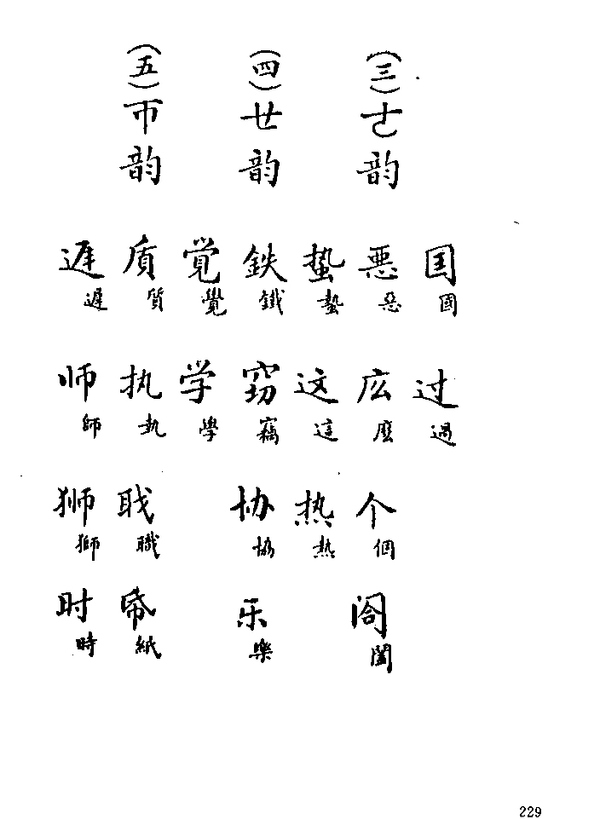 (三)ㄜ韵
囯國 过過
悪惡 庅麼 个個 阁閣
蛰蟄 这這 热熱
(四)ㄝ韵
鉄鐵 窃竊 协協 乐樂
覚覺 学學
(五)ㄭ韵
质質 执執 䏁職 帋紙
遅遲 师師 狮獅 时時
229